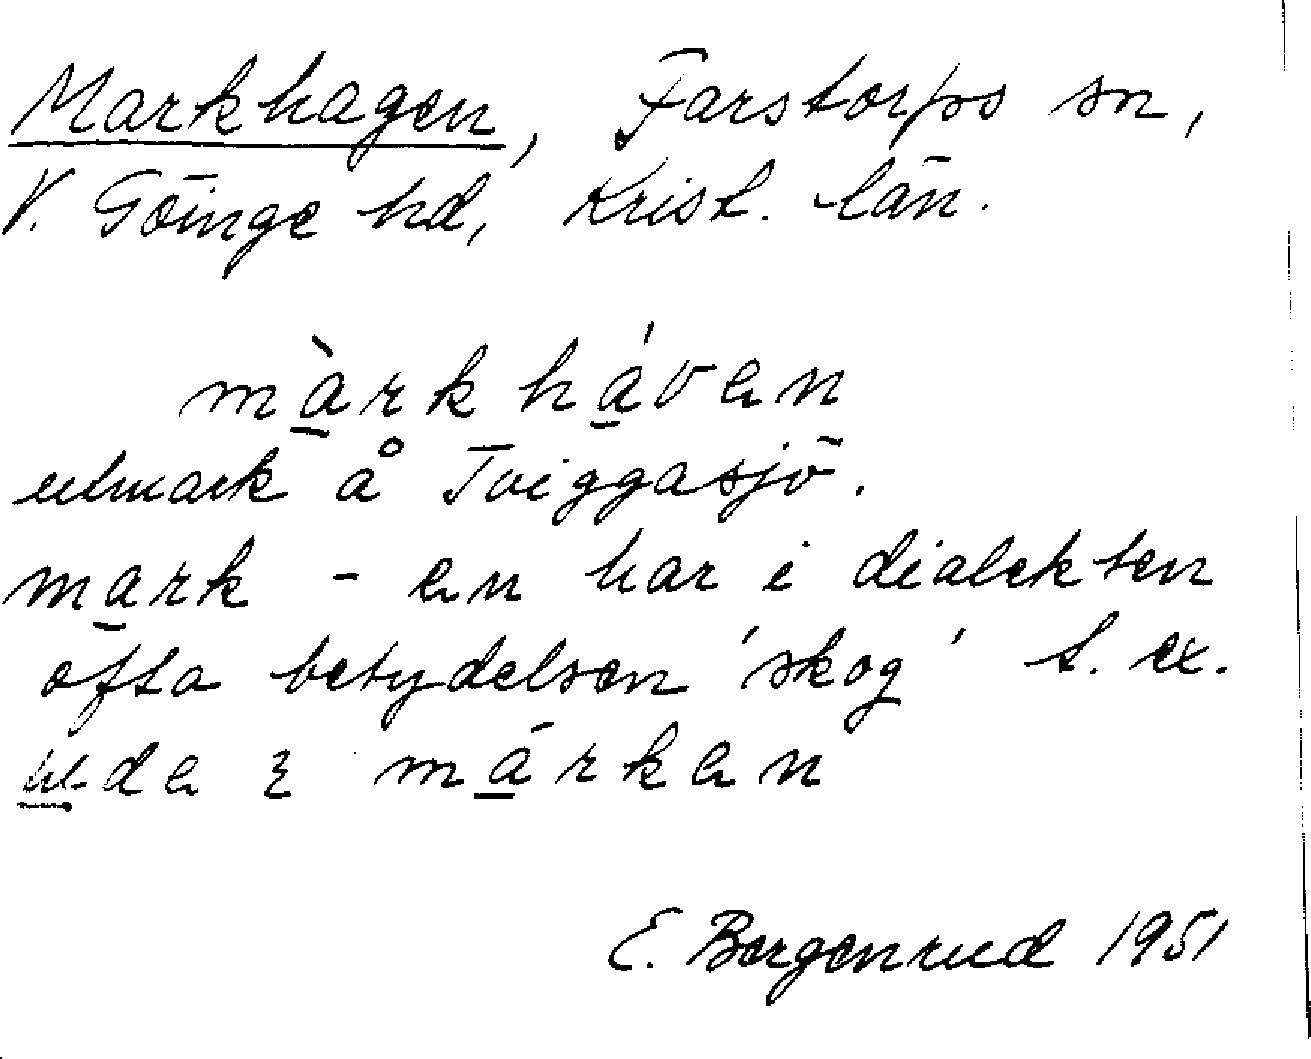 Markhagen, Farstorps sn,
V. Göinge hd, Krist. län.
màrkháven
utmark å Tviggasjö.
mark - en har i dialekten
ofta betydelsen 'skog' t. ex.
márken
E. Bergenrud 1951